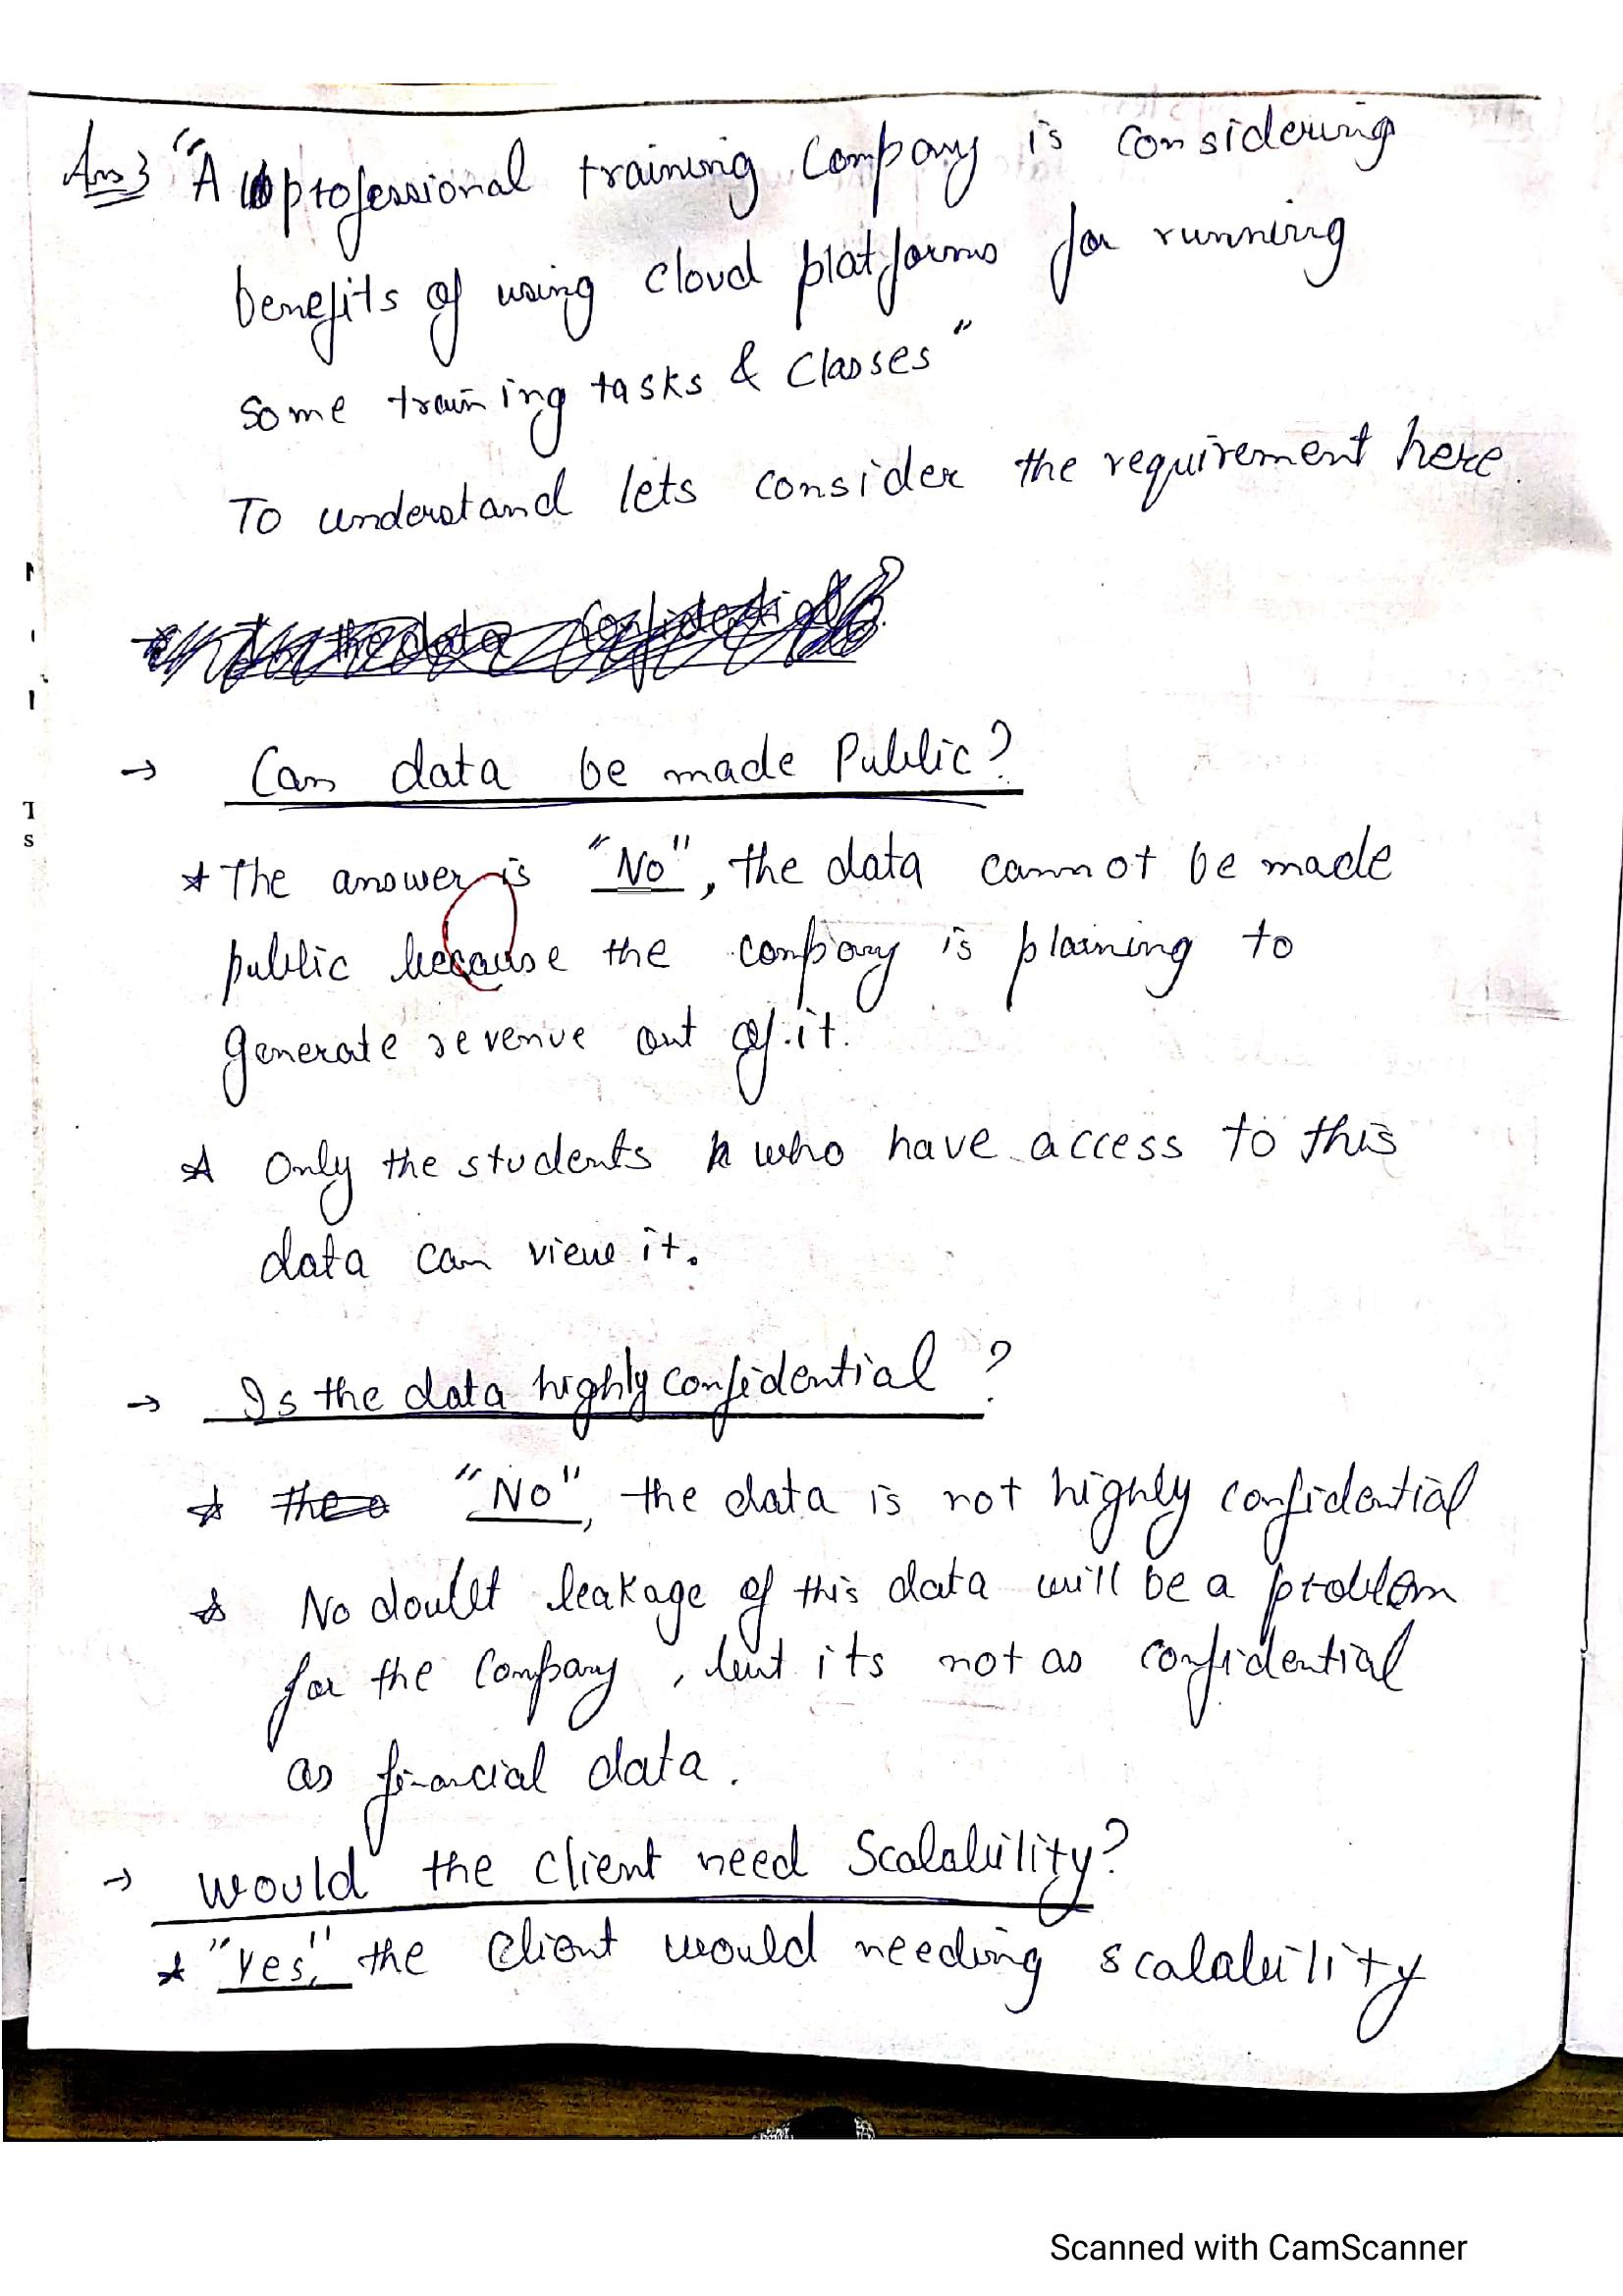 Ans 3 "A professional training Company is considering
benefits of using cloud platforms for running
some training tasks & Classes"
To understand lets consider the requirement here.
the data Confidential?
→ Can data be made Public?
* The answer is "No", the data cannot be made
public because the company is planing to
generate revenue out of it.
* Only the students who have access to this
data can view it.
→ Is the data highly confidential?
* the "No", the data is not highly confidential
* No doubt leakage of this data will be a problem
for the Company, but its not as confidential
as financial data.
→ Would the client need Scalability?
* "Yes," the Client would needing scalability
T
s
Scanned with CamScanner